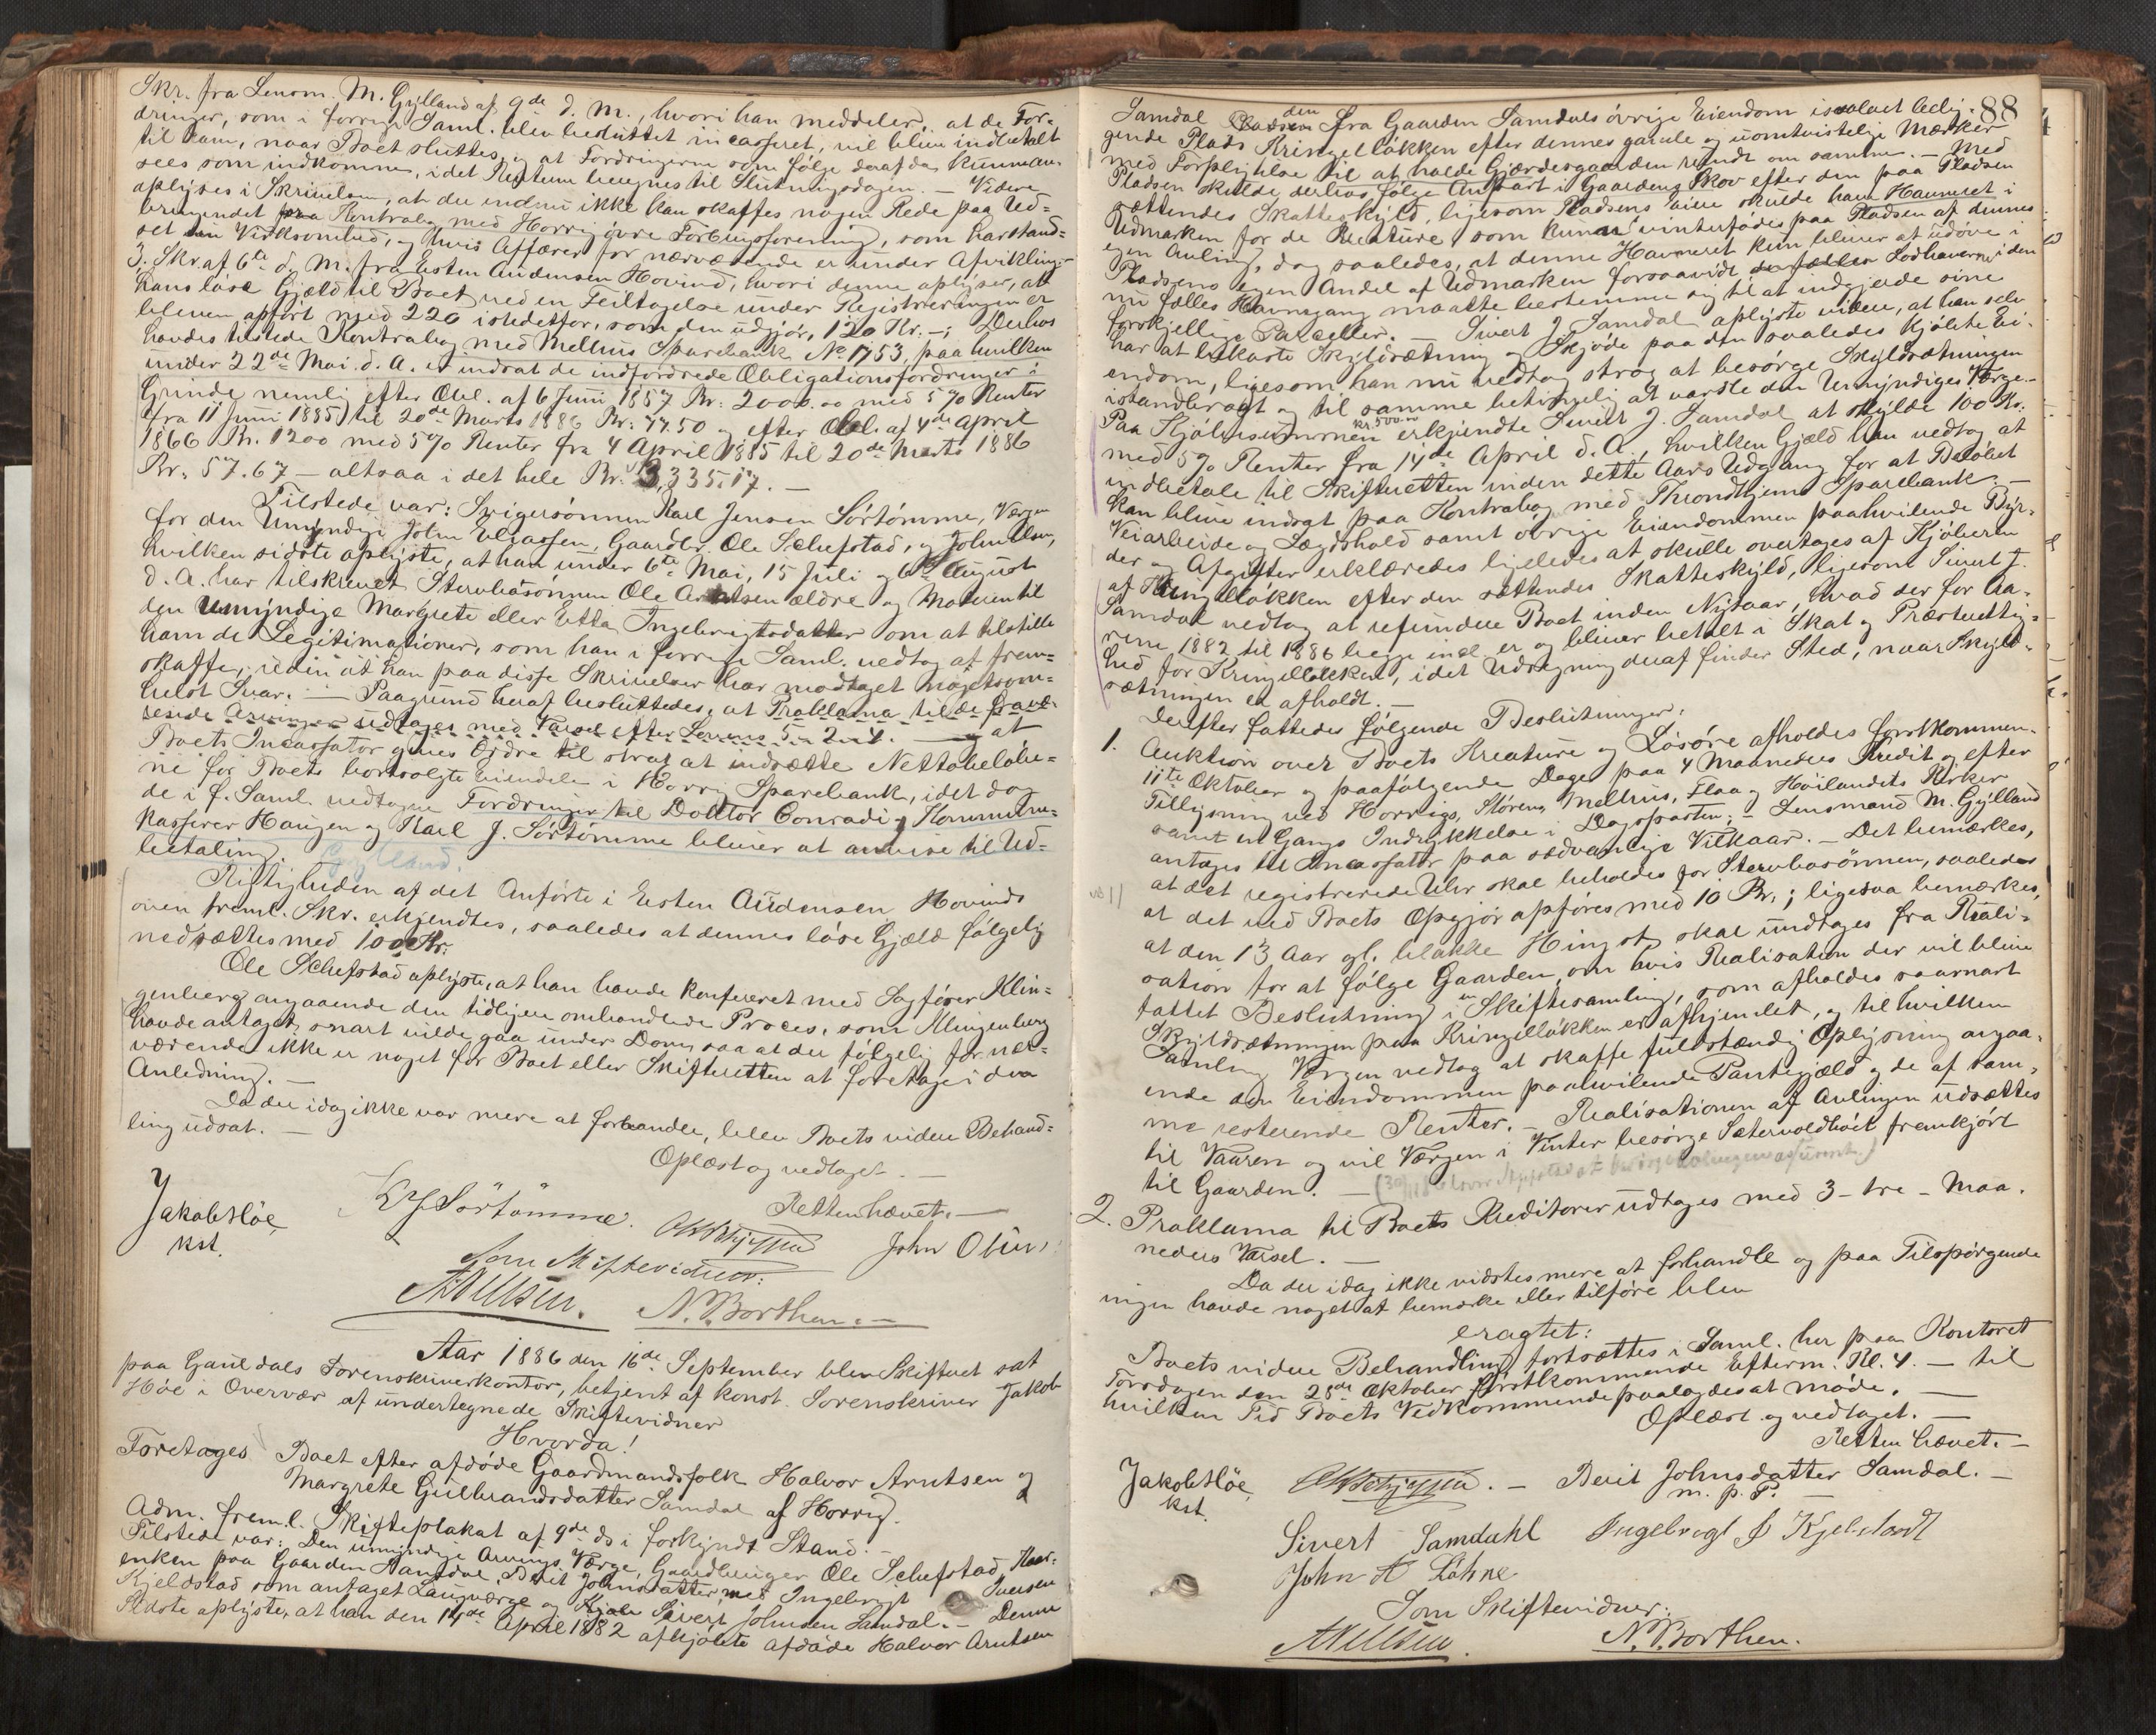 Skr. fra Lensm. M. Gylland af 9de d. M., hvori han meddeler, at de For=
dringer, som i forrige Saml. blev besluttet incasseret, vil blive indbetalt
til ham, naar Boet sluttes, og at Fordringerne som Følge deraf da kunne an-
sees som indkomne, idet Renterne beregnes til Slutningsdagen. — Videre
oplyses i Skrivelsen, at der endnu ikke kan skaffes nogen Rede paa Ud=
bringendet paa Kontrabog med Horrig øvre Forbrugsforening, som har stand=
set sin Virksomhed, og hvis Affærer for nærværende er under Afvikling. —
3. Skr. af 6te d. M. fra Esten Audensen Hovind, hvori denne oplyser, at
hans løse Gjæld til Boet ved en Feiltagelse under Registreringen er
bleven opført med 220 istedetfor, som den udgjør, 120 Kr. —; Derhos
havdes tilstede Kontrabog med Melhus Sparebank No 1753, paa hvilken
under 22de Mai d. A. er indsat de indfordrede Obligationsfordringer i
Grinde nemlig efter Obl. af 6 Juni 1857 Kr. 2000.00 med 5% Renter
fra 11 Juni 1885 til 20de Marts 1886 Kr. 77.50 og efter Obl. af 4de April
1866 Kr. 1200 med 5% Renter fra 4 April 1885 til 20de Marts 1886
Kr. 57.67 — altsaa i det hele Kr. 3,335.17. —
Tilstede var: Svigersønnen Karl Jensen Sørtømme, Værgen
for den Umyndige John Eliassen, Gaardbr. Ole Schefstad, og John Olsen,
hvilken sidste oplyste, at han under 6te Mai, 15 Juli og 6te August
d. A. har tilskrevet Stervbosønnen Ole Arntsen ældre og Moderen til
den Umyndige Margrete eller Etta Ingebrigtsdatter om at tilstille
ham de Legitimationer, som han i forrige Saml. vedtog at frem=
skaffe, uden at han paa disse Skrivelser har modtaget nogetsom=
helst Svar. — Paagrund heraf besluttedes, at Proklama til de fravæ-
rende Arvinger udtages med Varsel efter Lovens § 2 — 4. — og at
Boets Incassator gives Ordre til strax at indsætte Nettobeløbe=
ne for Boets bortsolgte Eiendele i Horrig Sparebank, idet dog
de i f. Saml. vedtagne Fordringer til Doktor Conradi og Kommune=
kasserer Haugen og Karl J. Sørtømme bliver at anvise til Ud=
betaling. Gylland.
Rigtigheden af det Anførte i Esten Audensen Hovinds
oven freml. Skr. erkjendtes, saaledes at dennes løse Gjæld følgelig
nedsættes med 100 Kr.
Ole Schefstad oplyste, at han havde konfereret med Sagfører Klin=
genberg angaaende den tidligere omhandlede Proces, som Klingenberg
havde antaget snart vilde gaa under Dom, saa at der følgelig for nær=
værende ikke er noget for Boet eller Skifteretten at foretage i den
Anledning. —
Da der idag ikke var mere at forhandle, blev Boets videre Behand=
ling udsat. —
Oplæst og vedtaget. —
Retten hævet. —
Jakob Høe,
kst.
K J Sørtømme.
John Olsen
Som Skiftevidner:
N. Borthen. —
Aar 1886 den 16de September blev Skifteret sat
paa Gauldals Sorenskriverkontor, betjent af konst. Sorenskriver Jakob
Høe i Overvær af undertegnede Skiftevidner
Hvorda!
Foretoges Boet efter afdøde Gaardmandsfolk Halvor Arntsen og
Margrete Gulbrandsdatter Samdal af Horrig.
Adm. freml. Skifteplakat af 9de ds i forkyndt Stand. —
Tilstede var: Den umyndige Arvings Værge, Gaardbruger Ole Schefstad,
enken paa Gaarden Samdal, Berit Johnsdatter, med Ingebrigt Iversen
Kjeldstad som antaget Laugværge og Kjøber Sivert Johnsen Samdal. — Denne
sidste oplyste, at han den 14de April 1882 afkjøbte afdøde Halvor Arntsen
88
Samdal Pladsen den fra Gaarden Samdals øvrige Eiendom isoleret belig-
gende Plads Kringelløkken efter dennes gamle og uomtvistelige Mærker
med Forpligtelse til at holde Gjærdesgaarden rundt om samme. — Med
Pladsen skulde derhos følge Anpart i Gaardens Skov efter den paa Pladsen
sættendes Skatteskyld, ligesom Pladsens Eier skulde have Havneret i
Udmarken for de Kreature, som kunne vinterfødes paa Pladsen af dennes
egen Avling, dog saaledes, at denne Havneret kun bliver at udøve i
Pladsens egen Andel af Udmarken forsaavidt de fælles Lodhavere i den
nu fælles Havnegang maatte bestemme sig til at indgjerde sine
forskjellige Parceller. — Sivert J. Samdal oplyste videre, at han selv
har at bekoste Skyldsætning og Skjøde paa den saaledes kjøbte Ei-
endom, ligesom han nu vedtog strax at besørge Skyldsætningen
istandbragt og til samme betimelig at varsle den Umyndiges Værge. —
Paa Kjøbesummen Kr. 500.00 erkjendte Sivert J. Samdal at skylde 100 Kr.
med 5% Renter fra 14de April d. A., hvilken Gjæld han vedtog at
indbetale til Skifteretten inden dette Aars Udgang for at Beløbet
kan blive indsat paa Kontrabog med Throndhjems Sparebank. —
Veiarbeide og Lægdshold samt øvrige Eiendommen paahvilende Byr-
der og Afgifter erklæredes ligeledes at skulle overtages af Kjøberen
af Kringelløkken efter den sættendes Skatteskyld, ligesom Sivert J.
Samdal vedtog at refundere Boet inden Nytaar, hvad der for Aa-
rene 1882 til 1886 begge incl. er og bliver betalt i Skat og Præsterettig-
hed for Kringelløkken, idet Udregning deraf finder Sted, naar Skyld-
sætningen er afholdt. —
Derefter fattedes følgende Beslutninger:
1. Auktion over Boets Kreature og Løsøre afholdes førstkommen-
11te Oktober og paafølgende Dage paa 4 Maaneders Kredit og efter
Tillysning ved Horrigs, Størens, Melhus, Flaa og Høilandets Kirker
samt en Gangs Indrykkelse i Dagsposten; — Lensmand M. Gylland
antages til Incassator paa sædvanlige Vilkaar. — Det bemærkes,
at det registrerede Uhr skal beholdes for Stervbosønnen, saaledes
at det ved Boets Opgjør opføres med 10 Kr.; ligesaa bemærkes,
at den 13 Aar gl. blakke Hingst skal undtages fra Reali-
sation for at følge Gaarden, om hvis Realisation der vil blive
fattet Beslutning i en Skiftesamling, som afholdes saasnart
Skyldsætningen paa Kringelløkken er afhjemlet, og til hvilken
Samling Værgen vedtog at skaffe fuldstændig Oplysning angaa-
ende den Eiendommen paahvilende Pantegjæld og de af sam-
me resterende Renter. — Realisationen af Avlingen udsættes
til Vaaren og vil Værgen i Vinter besørge Sætervoldhøiet fremkjørt
til Gaarden. —
2. Proklama til Boets Kreditorer udtages med 3 - tre - Maa-
neders Varsel. —
Da der idag ikke vidstes mere at forhandle og paa Tilspørgende
ingen havde noget at bemærke eller tilføre blev
eragtet:
Boets videre Behandling fortsættes i Saml. her paa Kontoret
Torsdagen den 28de Oktober førstkommende Efterm. Kl. 4. — til
hvilken Tid Boets Vedkommende paalagdes at møde. —
Oplæst og vedtaget. —
Retten hævet. —
Jakob Høe,
kst.
Berit Johnsdatter Samdal. —
m. p. P.
Sivert Samdahl Ingebrigt J Kjelstad
John A Løhne
Som Skiftevidner:
N. Borthen.